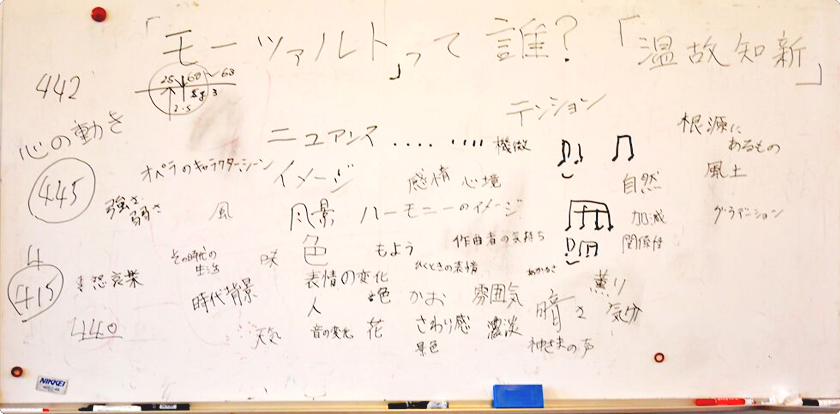 「モーツァルト」って誰？「温故知新」
442
25 60～63
2.5 58 3
心の動き
テンション
ニュアンス ‥‥ ‥‥ 機微
根源に
あるもの
オペラのキャラクターシーン
イメージ
感情 心境
自然
風土
445
強さ
弱さ
風
風景
ハーモニーのイメージ
加減
グラデーション
4
その時代の
生活
咲
色
もよう
作曲者の気持ち
関係性
415
喜怒哀楽
時代背景
表情の変化
ひくときの表情
あたたかさ
薫り
人
色
かお
雰囲気
暗さ
気分
440
天気
音の変化
花
さわり感
濃淡
神さまの声
景色
NIKKEI